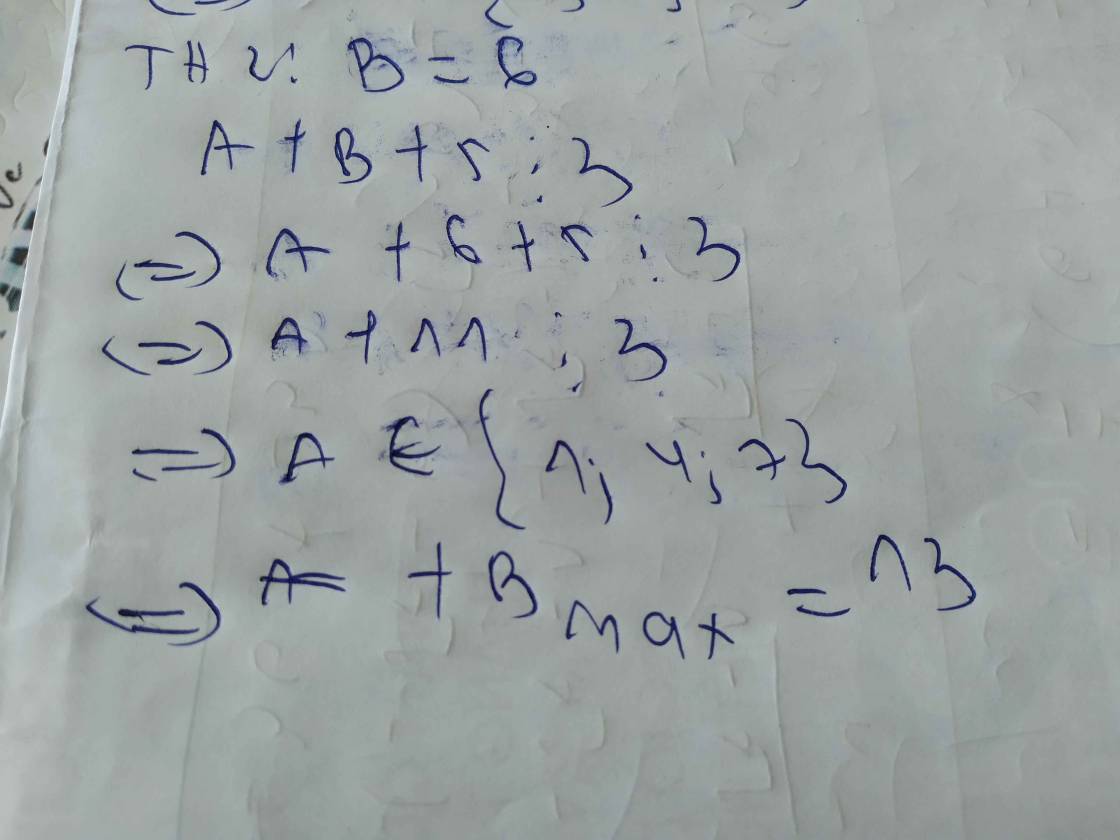 TH2: B = 6
A + B + 5 ⋮ 3
(=) A + 6 + 5 ⋮ 3
(=) A + 11 ⋮ 3
=) A ∈ {1; 4; 7}
(=) A + B max = 13